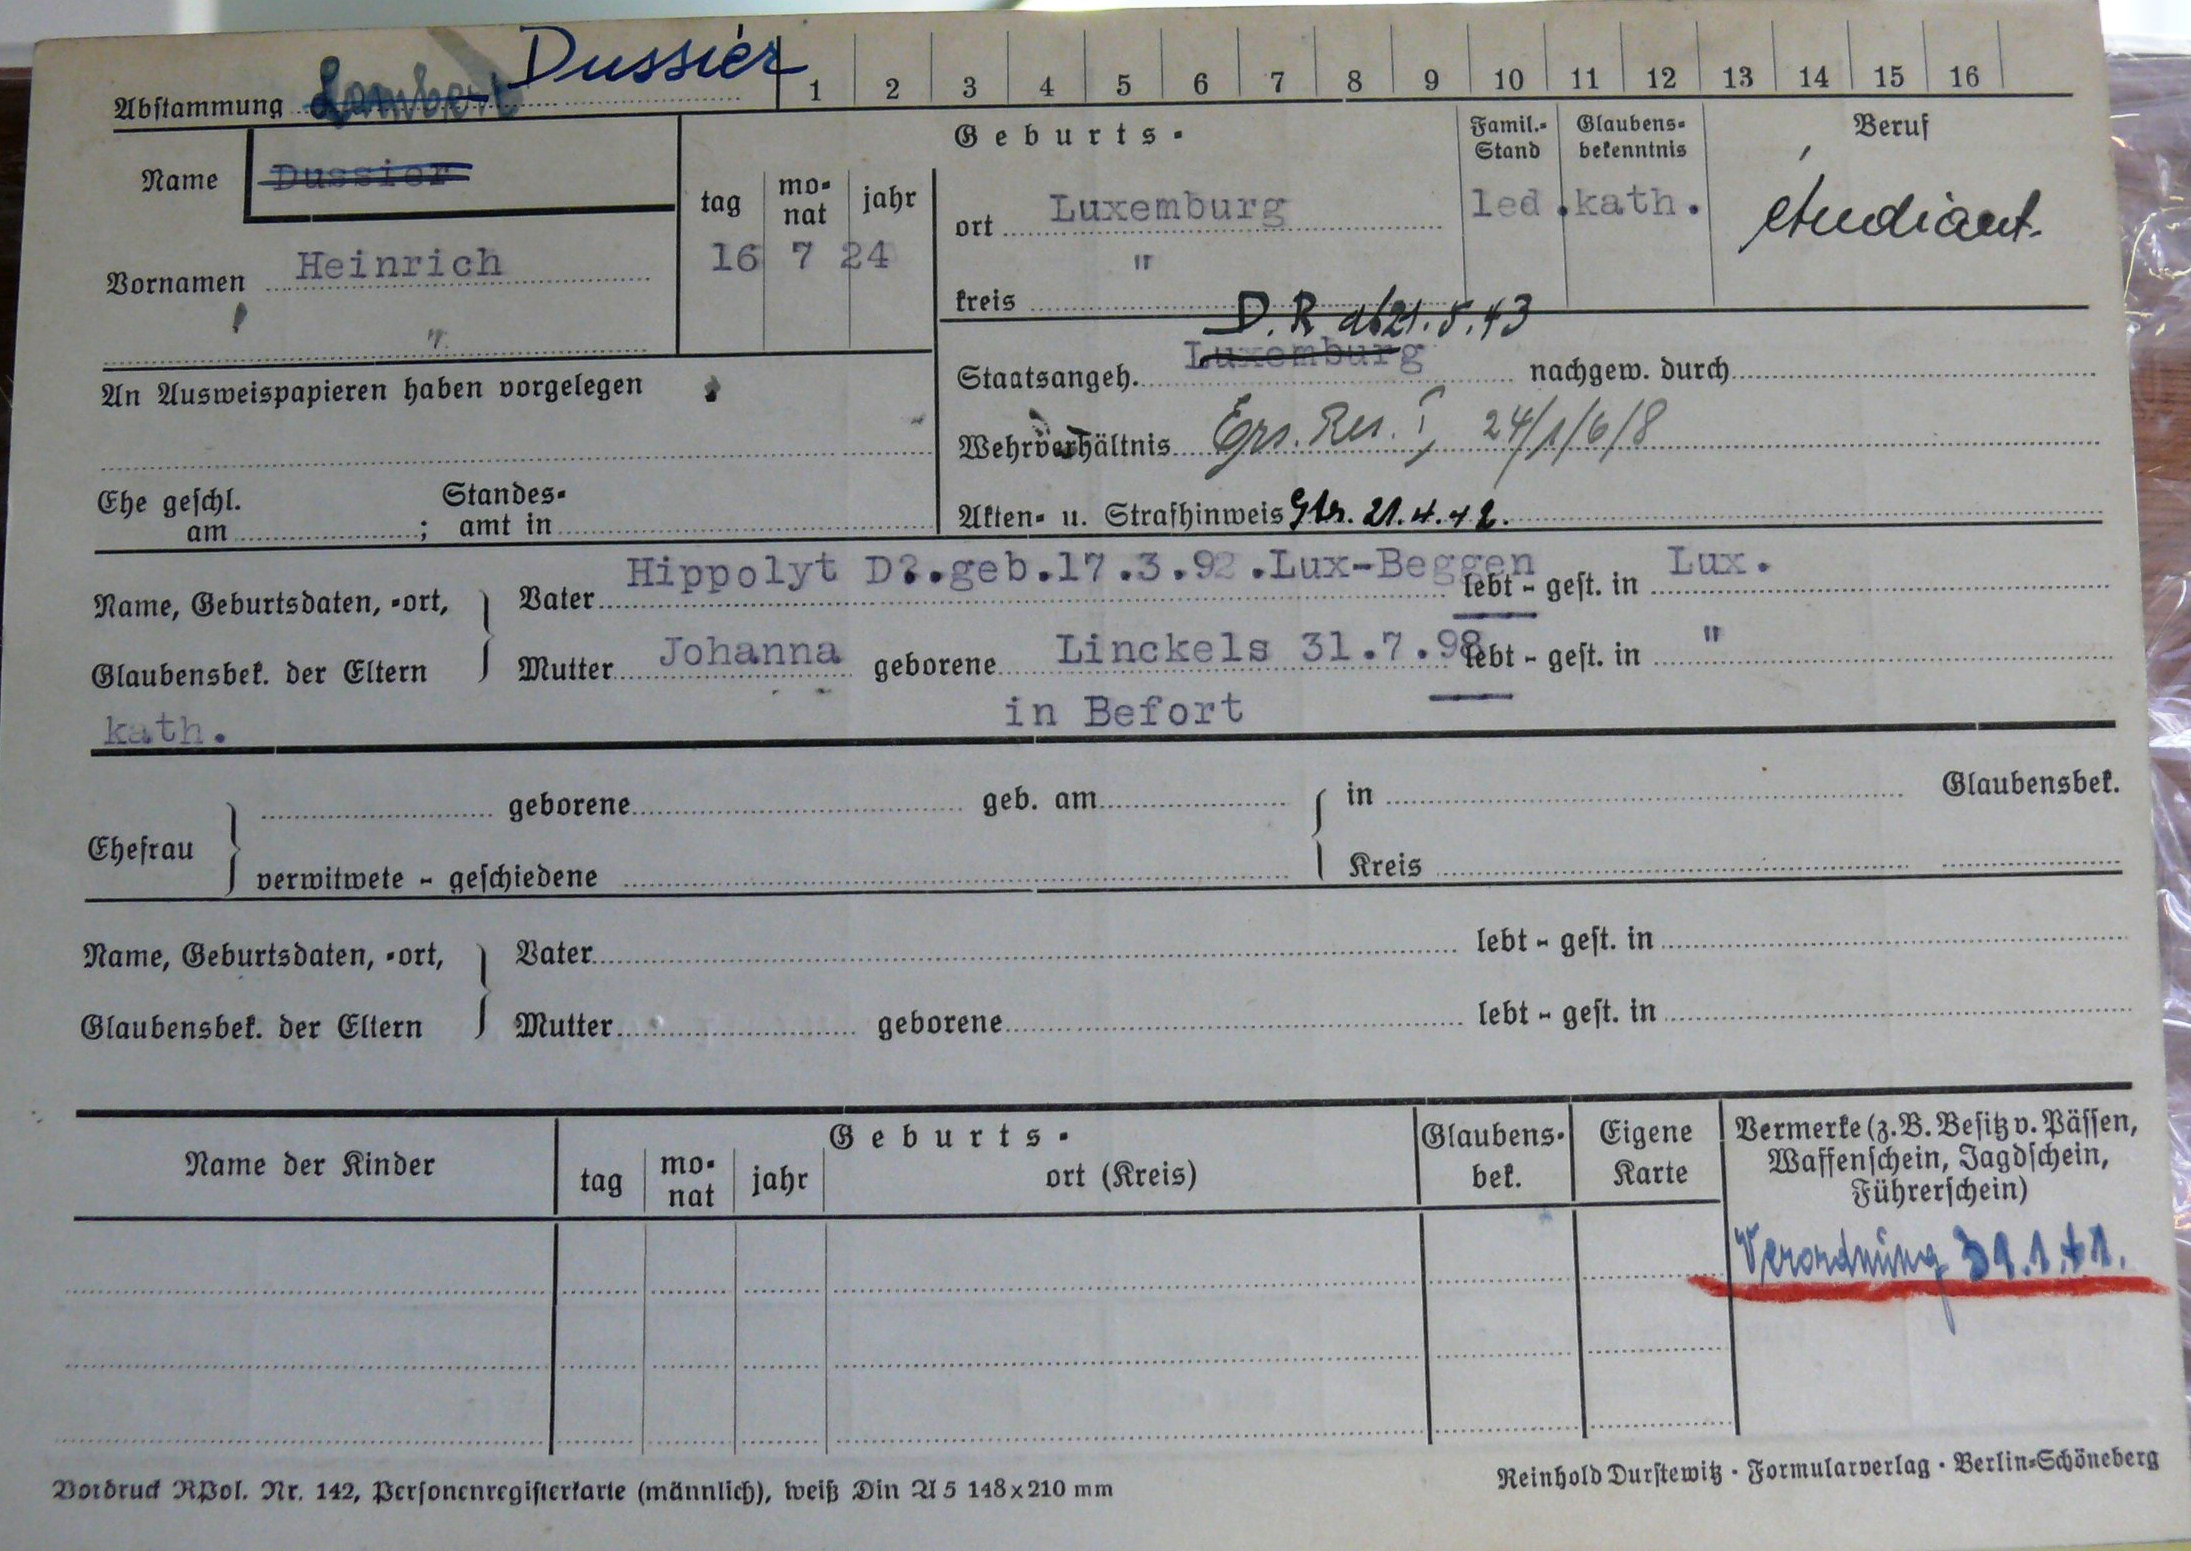 Dussiér
Abstammung 1 2 3 4 5 6 7 8 9 10 11 12 13 14 15 16
Name Dussier
Geburts-
tag monat jahr
Famil.-Stand Glaubensbekenntnis Beruf
ort Luxemburg led. kath. étudiant.
Vornamen Heinrich 16 7 24
kreis "
"
D.R. ab 21.5.43
Staatsangeh. Luxemburg nachgew. durch
An Ausweispapieren haben vorgelegen
Wehrverhältnis Ers. Res. I, 24/1/6/8
Ehe geschl. am ; Standesamt in
Akten- u. Strafhinweis 21.4.42.
Name, Geburtsdaten, -ort, Vater Hippolyt D?.geb.17.3.92.Lux-Beggen lebt - gest. in Lux.
Glaubensbek. der Eltern Mutter Johanna geborene Linckels 31.7.98 lebt - gest. in "
kath. in Befort
Ehefrau geborene geb. am in Glaubensbek.
verwitwete - geschiedene Kreis
Name, Geburtsdaten, -ort, Vater lebt - gest. in
Glaubensbek. der Eltern Mutter geborene lebt - gest. in
Name der Kinder
Geburts-
tag monat jahr ort (Kreis)
Glaubensbek.
Eigene Karte
Vermerke (z. B. Besitz v. Pässen,
Waffenschein, Jagdschein,
Führerschein)
Verordnung 31.1.41.
Vordruck RPol. Nr. 142, Personenregisterkarte (männlich), weiß Din A 5 148 x 210 mm
Reinhold Durstewitz · Formularverlag · Berlin-Schöneberg